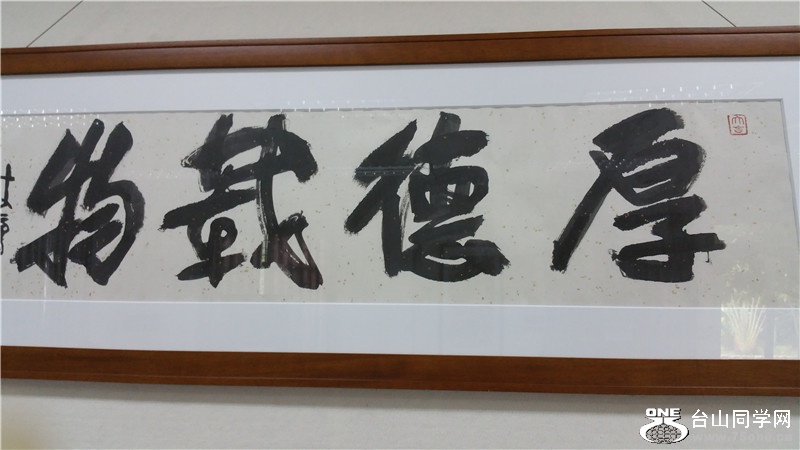 厚德载物
ONE 台山同学网